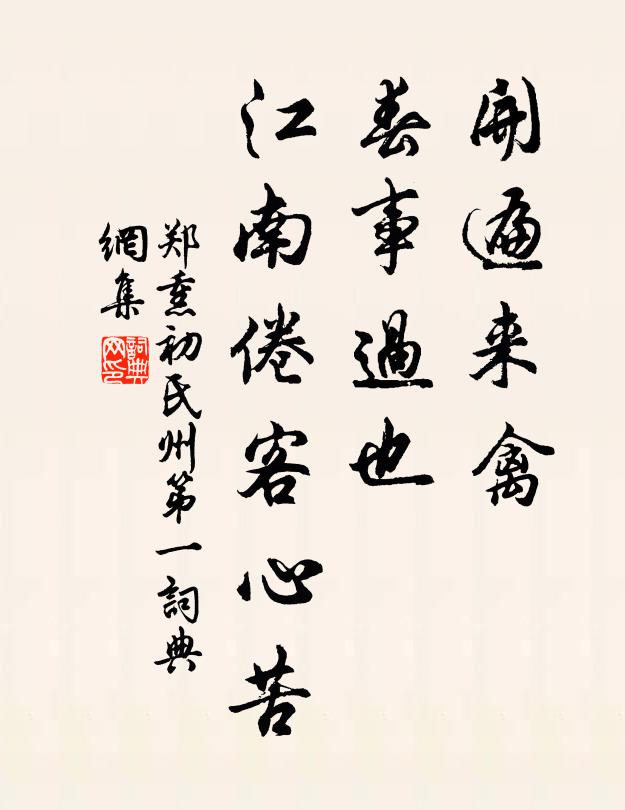 開遍来禽
春事過也
江南倦客心苦
郑熏初氏州第一詞典
網集
詞典
网印